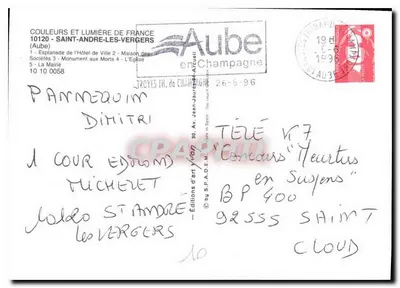 COULEURS ET LUMIÈRE DE FRANCE
10120 - SAINT-ANDRE-LES-VERGERS
(Aube)
1 - Esplanade de l'Hôtel de Ville 2 - Maison des
Sociétés 3 - Monument aux Morts 4 - L'Eglise
5 - La Mairie
10 10 0058
Aube
en Champagne
TROYES CH. de CHAMPAGNE 26-6-96
19 H
1996
AUBE
PANNEQUIN
DIMITRI
1 COUR EDMOND
MICHELET
10120 ST ANDRE
les VERGERS
Editions d'art YVON
by S.P.A.D.E.M.
TÉLÉ N° 7
"Concours" Meurtres
en Suspens"
BP 400
92555 SAINT
CLOUD
10